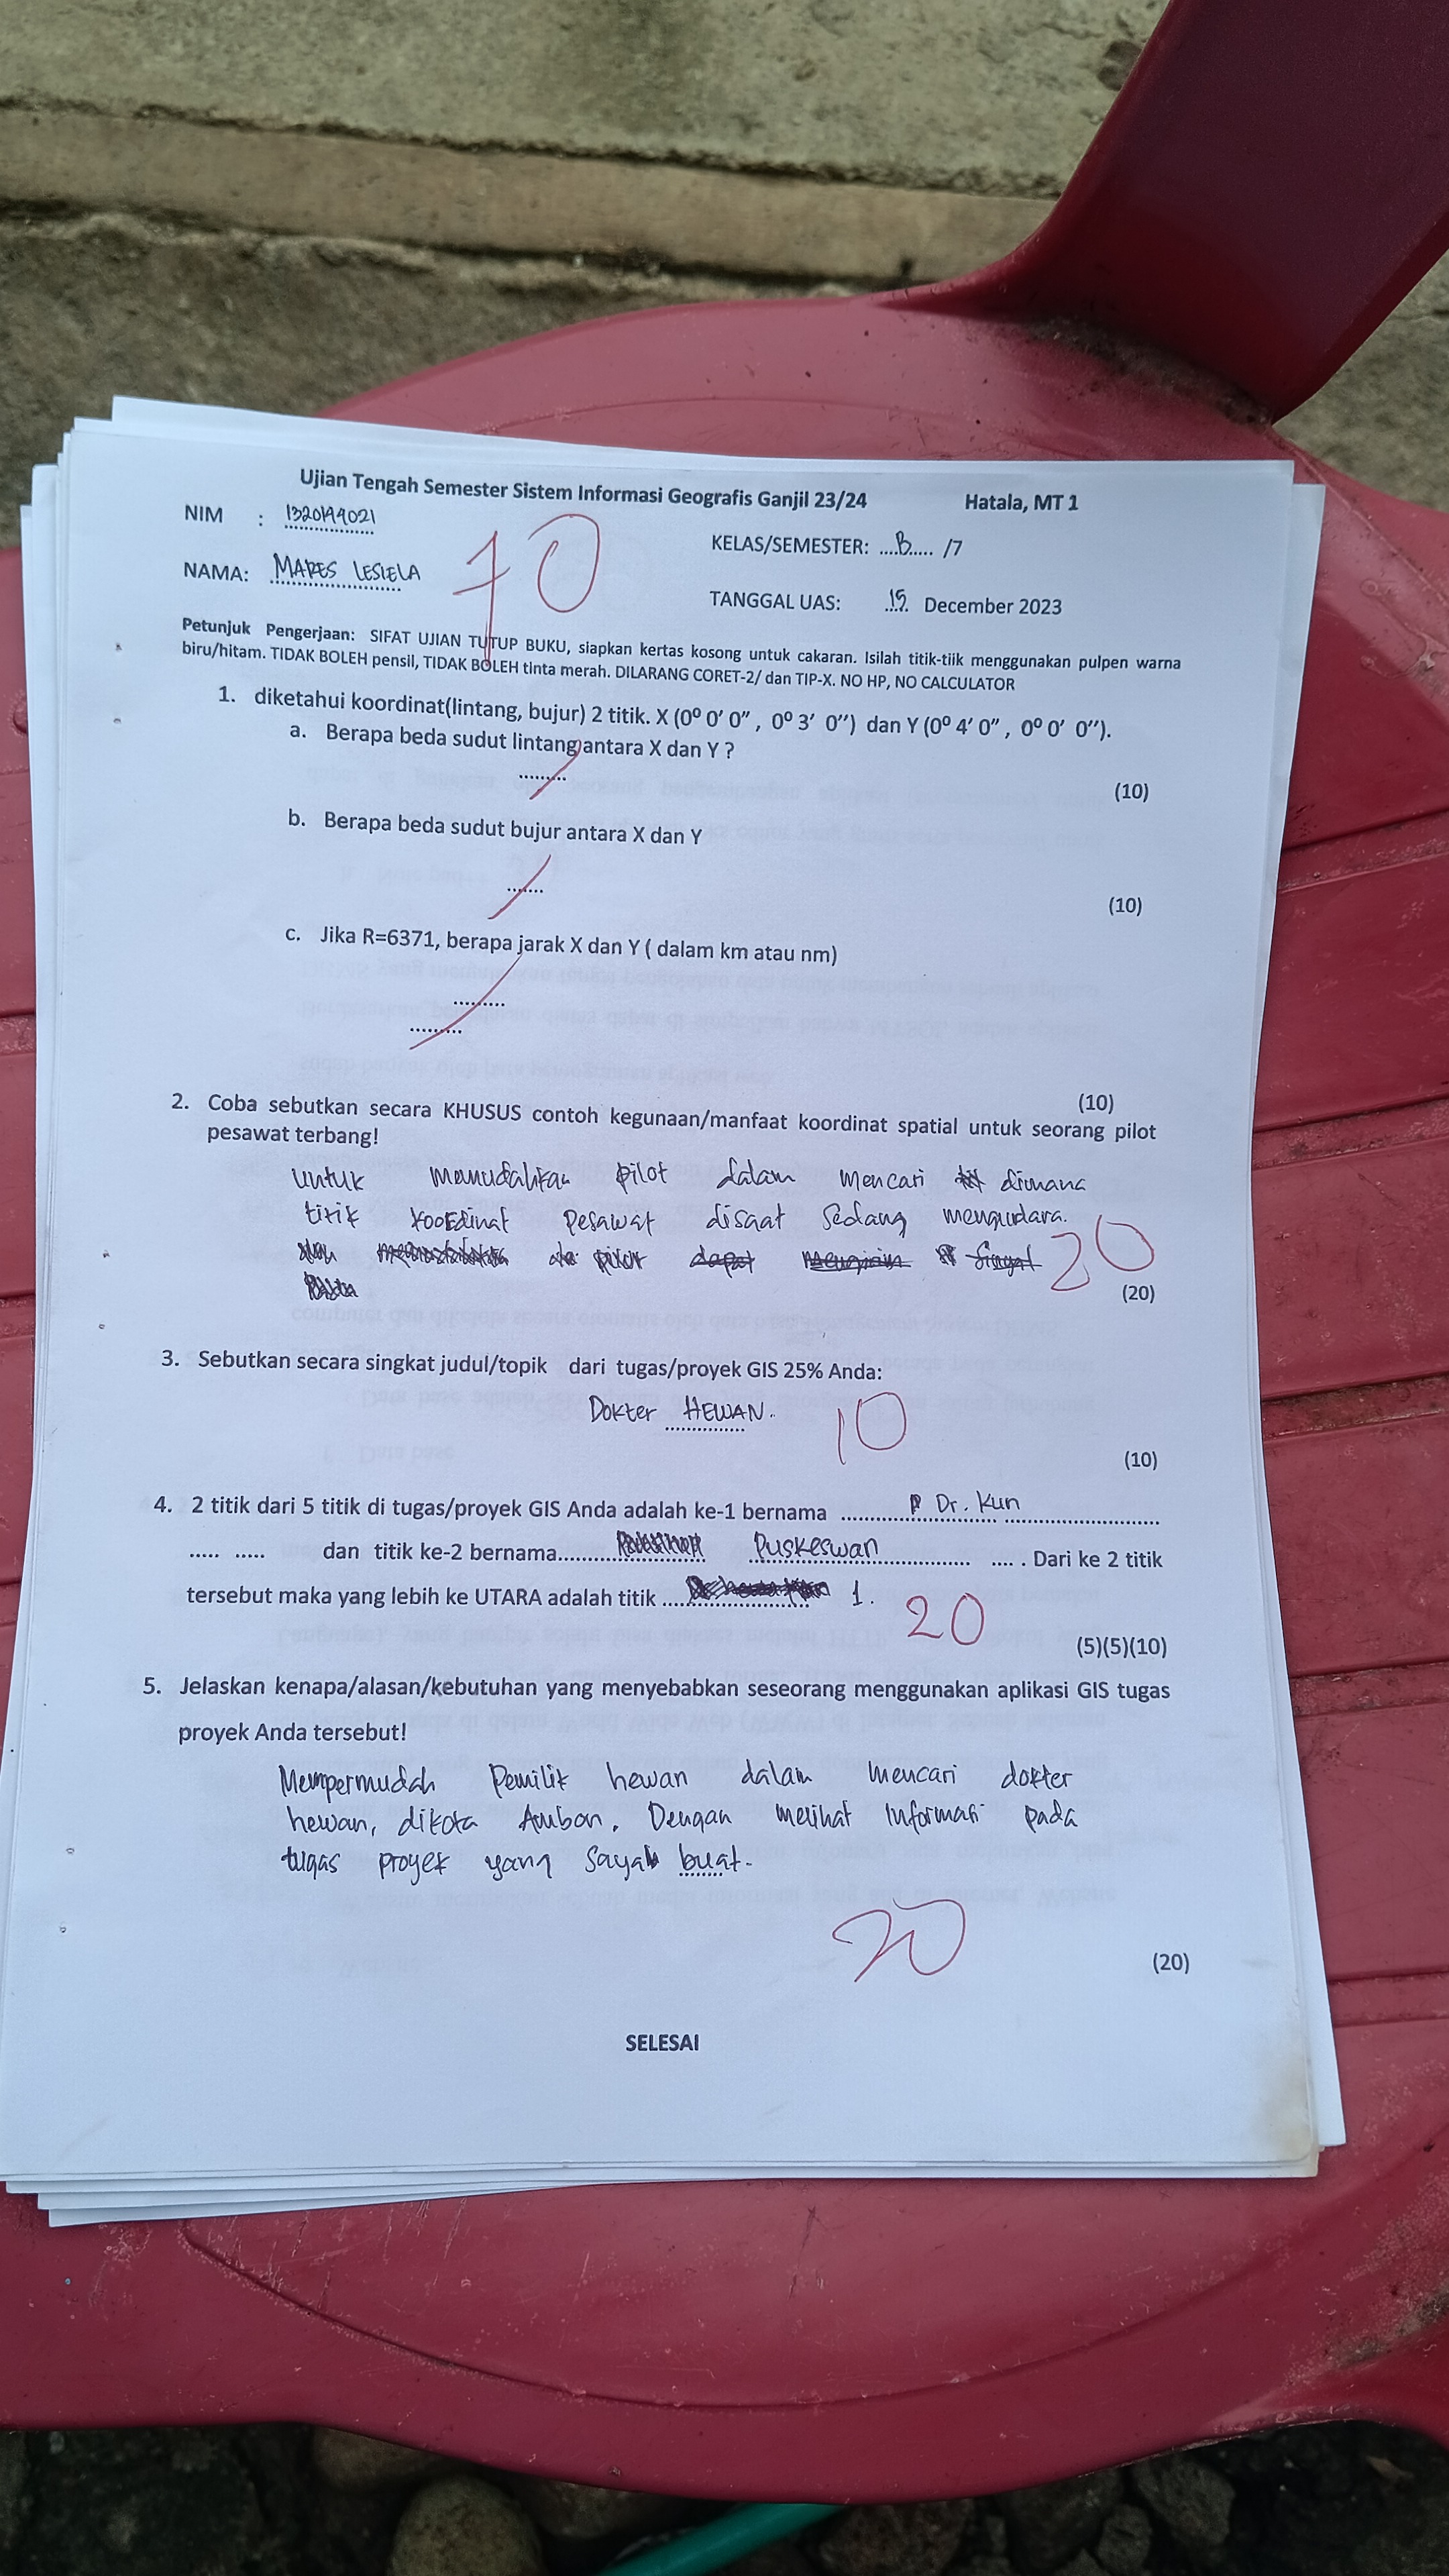 Ujian Tengah Semester Sistem Informasi Geografis Ganjil 23/24 Hatala, MT 1
NIM : 1320144021
KELAS/SEMESTER: ....B..... /7
NAMA: MARES LESIELA
70
TANGGAL UAS: .15. December 2023
Petunjuk Pengerjaan: SIFAT UJIAN TUTUP BUKU, siapkan kertas kosong untuk cakaran. Isilah titik-tiik menggunakan pulpen warna
biru/hitam. TIDAK BOLEH pensil, TIDAK BOLEH tinta merah. DILARANG CORET-2/ dan TIP-X. NO HP, NO CALCULATOR
1. diketahui koordinat(lintang, bujur) 2 titik. X (0⁰ 0' 0'' , 0⁰ 3' 0'') dan Y (0⁰ 4' 0'' , 0⁰ 0' 0'').
a. Berapa beda sudut lintang antara X dan Y ?
.........
(10)
b. Berapa beda sudut bujur antara X dan Y
.......
(10)
c. Jika R=6371, berapa jarak X dan Y ( dalam km atau nm)
.........
.........
(10)
2. Coba sebutkan secara KHUSUS contoh kegunaan/manfaat koordinat spatial untuk seorang pilot
pesawat terbang!
Untuk memudahkan pilot dalam mencari dimana
titik koordinat pesawat disaat sedang mengudara.
pilot dapat
20
(20)
3. Sebutkan secara singkat judul/topik dari tugas/proyek GIS 25% Anda:
Dokter HEWAN.
10
(10)
4. 2 titik dari 5 titik di tugas/proyek GIS Anda adalah ke-1 bernama Dr. Kun
..... ..... dan titik ke-2 bernama Puskeswan .... . Dari ke 2 titik
tersebut maka yang lebih ke UTARA adalah titik 1.
20
(5)(5)(10)
5. Jelaskan kenapa/alasan/kebutuhan yang menyebabkan seseorang menggunakan aplikasi GIS tugas
proyek Anda tersebut!
Mempermudah Pemilik hewan dalam mencari dokter
hewan, dikota Ambon. Dengan melihat Informasi pada
tugas proyek yang saya buat.
20
(20)
SELESAI